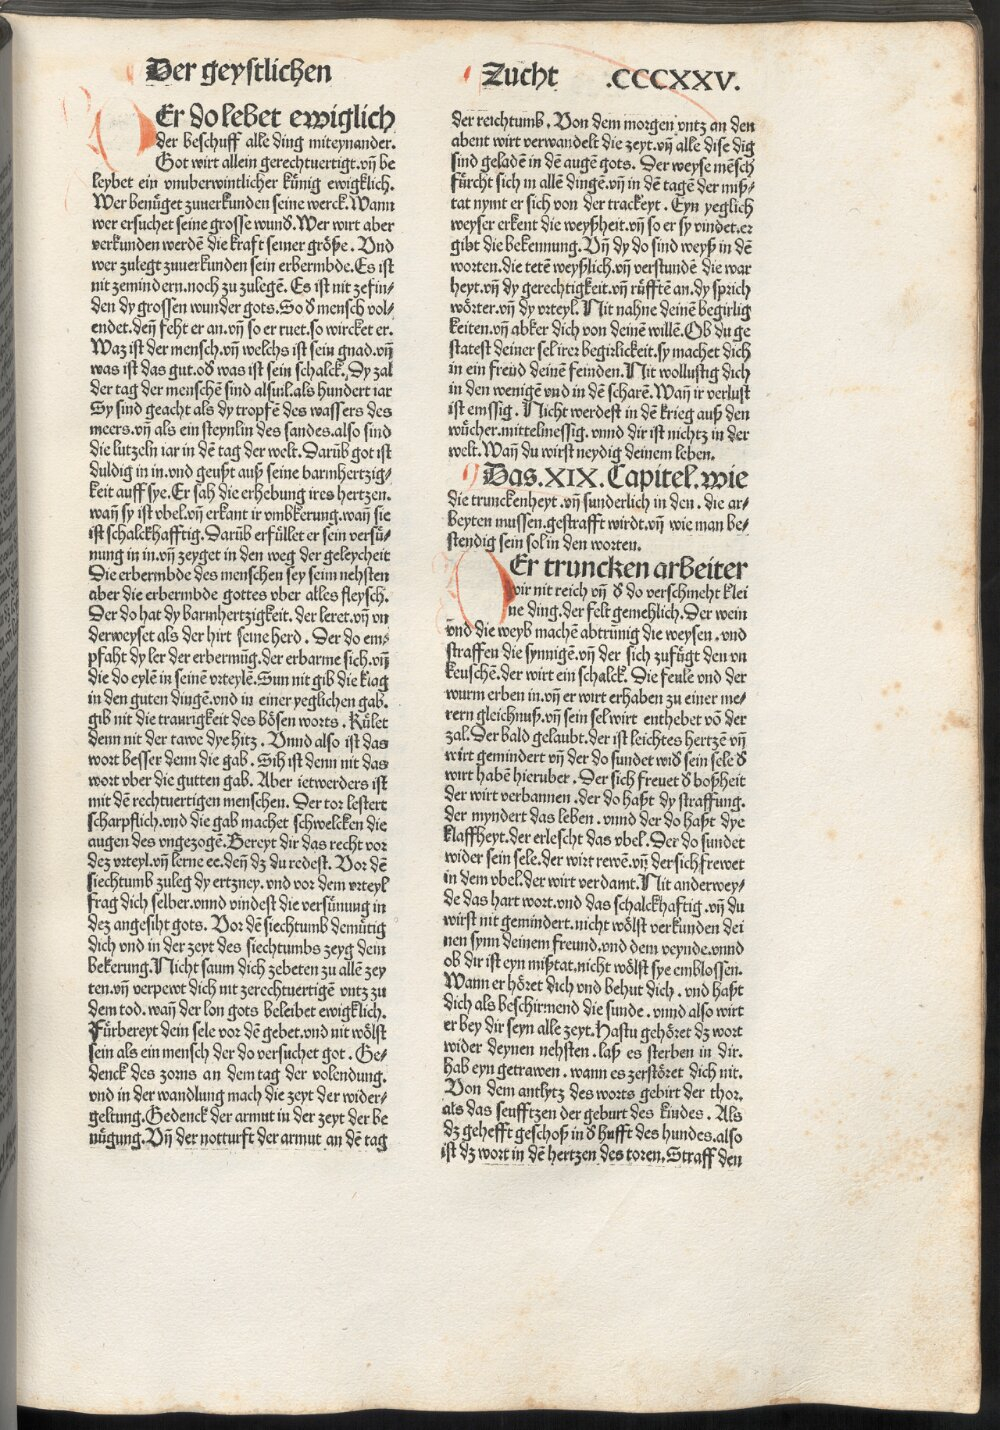 Der geystlichen Zucht .CCCXXV.
Er do lebet ewiglich
der beschuff alle ding miteynander.
Got wirt allein gerechtuertigt.vñ be
leybet ein vnuberwintlicher künig ewigklich.
Wer benüget zuuerkunden seine werck.Wann
wer ersuchet seine grosse wund̛.Wer wirt aber
verkunden werdē die kraft seiner größe. Vnd
wer zulegt zuuerkunden sein erbermbde.Es ist
nit zemindern.noch zu zulegē. Es ist nit zefin⸗
den dy grossen wunder gots.So d̛ mensch vol⸗
endet.deñ feht er an.vñ so er ruet.so wircket er.
Waz ist der mensch.vñ welchs ist sein gnad.vñ
was ist das gut.od̛ was ist sein schalck. Dy zal
der tag der menschē sind alsuil.als hundert iar
Sy sind geacht als dy tropfē des wassers des
meers.vñ als ein steynlin des sandes.also sind
die lutzeln iar in dē tag der welt.Darūb got ist
duldig in in.vnd geußt auß seine barmhertzig⸗
keit auff sye.Er sah die erhebung ires hertzen.
wañ sy ist vbel.vñ erkant ir vmbkerung.wañ sie
ist schalckhafftig.Darūb erfüllet er sein versü⸗
nung in in.vñ zeyget in den weg der geleycheit
Die erbermbde des menschen sey seim nehsten
aber die erbermbde gottes vber alles fleysch.
Der do hat dy barmhertzigkeit. der leret.vñ vn
derweyset als der hirt seine herd. Der do em⸗
pfaht dy ler der erbermūg.der erbarme sich.vñ
die do eylē in seinē vrteylē.Sun nit gib die klag
in den guten dingē.vnd in einer yeglichen gab.
gib nit die traurigkeit des bösen worts. Kület
denn nit der tawe dye hitz. Vnnd also ist das
wort besser denn die gab. Sih ist denn nit das
wort vber die gutten gab. Aber ietwerders ist
mit dē rechtuertigen menschen. Der tor lestert
scharpflich.vnd die gab machet schwelcken die
augen des vngezogē.Bereyt dir das recht vor
dez vrteyl.vñ lerne ee.deñ dz du redest. Vor dē
siechtumb zuleg dy ertzney.vnd vor dem vrteyl
frag dich selber.vnnd vindest die versünung in
dez angesiht gots. Vor dē siechtumb demütig
dich vnd in der zeyt des siechtumbs zeyg dein
bekerung.Nicht saum dich zebeten zu allē zey
ten.vñ verpewt dich nit zerechtuertigē vntz zu
dem tod.wañ der lon gots beleibet ewigklich.
Fürbereyt dein sele vor dē gebet.vnd nit wölst
sein als ein mensch der do versuchet got. Ge⸗
denck des zorns an dem tag der volendung.
vnd in der wandlung mach die zeyt der wider⸗
geltung.Gedenck der armut in der zeyt der be
nügung.Vñ der notturft der armut an dē tag
der reichtumb. Von dem morgen vntz an den
abent wirt verwandelt die zeyt.vñ alle dise dig
sind geladē in dē augē gots. Der weyse mēsch
fürcht sich in allē dingē.vñ in dē tagē der miß⸗
tat nymt er sich von der trackeyt. Eyn yeglich
weyser erkent die weyßheit.vñ so er sy vindet.er
gibt die bekennung.Vñ dy do sind weyß in dē
worten.die tetē weyßlich.vñ verstundē die war
heyt.vñ dy gerechtigkeit.vñ rüfftē an.dy sprich
wörter.vñ dy vrteyl. Nit nahne deinē begirlig
keiten.vñ abker dich von deinē willē.Ob du ge
statest deiner sel irer begirlickeit.sy machet dich
in ein freud deinē feinden.Nit wollustig dich
in den wenigē vnd in dē scharē.Wañ ir verlust
ist emssig. Nicht werdest in dē krieg auß den
wücher.mittelmessig.vnnd dir ist nichtz in der
welt.Wañ du wirst neydig deinem leben.
Das.XIX.Capitel.wie
die trunckenheyt.vñ sunderlich in den. die ar⸗
beyten mussen.gestrafft wirdt.vñ wie man be⸗
stendig sein sol in den worten.
Er truncken arbeiter
wir nit reich vñ d̛ do verschmeht klei
ne ding.der felt gemehlich.Der wein
vnd die weyb machē abtrünig die weysen.vnd
straffen die synnigē.vñ der sich zufügt den vn
keuschē.der wirt ein schalck. Die feule vnd der
wurm erben in.vñ er wirt erhaben zu einer me⸗
rern gleichnuß.vñ sein sel wirt enthebet vō der
zal.Der bald gelaubt.der ist leichtes hertzē vñ
wirt gemindert vñ der do sundet wid̛ sein sele d̛
wirt habē hieruber. Der sich freuet d̛ boßheit
der wirt verbannen.der do haßt dy straffung.
der myndert das leben. vnnd der do haßt dye
klaffheyt.der erlescht das vbel. Der do sundet
wider sein sele.der wirt rewē.vñ der sich frewet
in dem vbel.der wirt verdamt.Nit anderwey⸗
de das hart wort.vnd das schalckhaftig.vñ du
wirst nit gemindert.nicht wölst verkunden dei
nen synn deinem freund.vnd dem veynde.vnnd
ob dir ist eyn mißtat.nicht wölst sye emblossen.
Wann er höret dich vnd behut dich. vnd haßt
dich als beschirmend die sunde. vnnd also wirt
er bey dir seyn alle zeyt.Hastu gehöret dz wort
wider deynen nehsten. laß es sterben in dir.
hab eyn getrawen. wann es zerstöret dich nit.
Von dem antlytz des worts gebirt der thor.
als das seufftzen der geburt des kindes. Als
dz gehefft geschoß in d̛ hufft des hundes.also
ist dz wort in dē hertzen des toren.Straff den